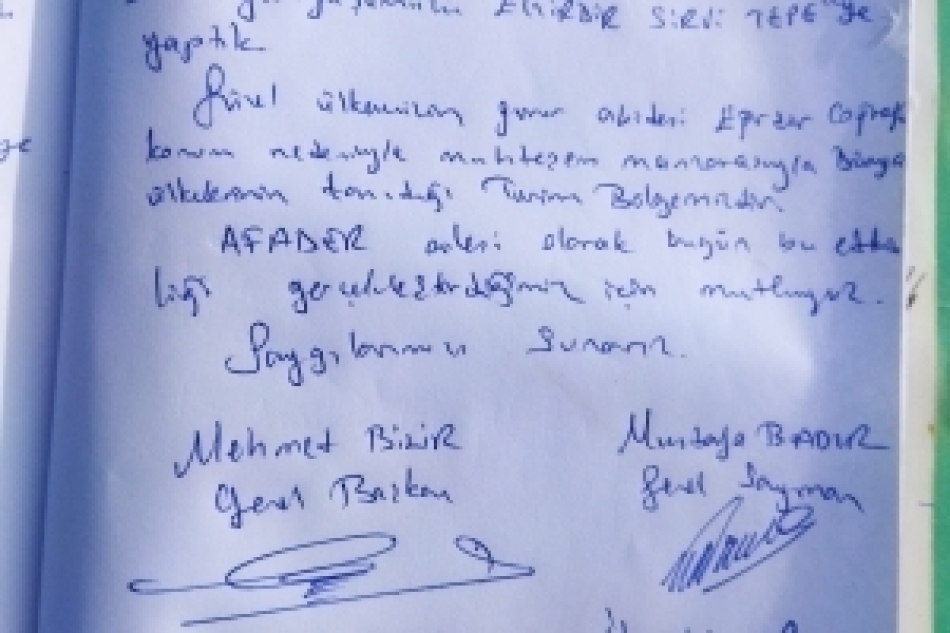 EĞİRDİR SİRVİ TEPE'ye
yaptık
Güzel ülkemizin gurur abidesi Eğirdir Coğrafi
konum nedeniyle muhteşem manzarasıyla Dünya
ülkelerinin tanıdığı Turizm Bölgemizdir
AFADER ailesi olarak bugün bu etkin
liği gerçekleştirdiğimiz için mutluyuz.
Saygılarımızı Sunarız.
Mehmet BİZİR
Genel Başkan
Mustafa BADUR
Genel Sayman